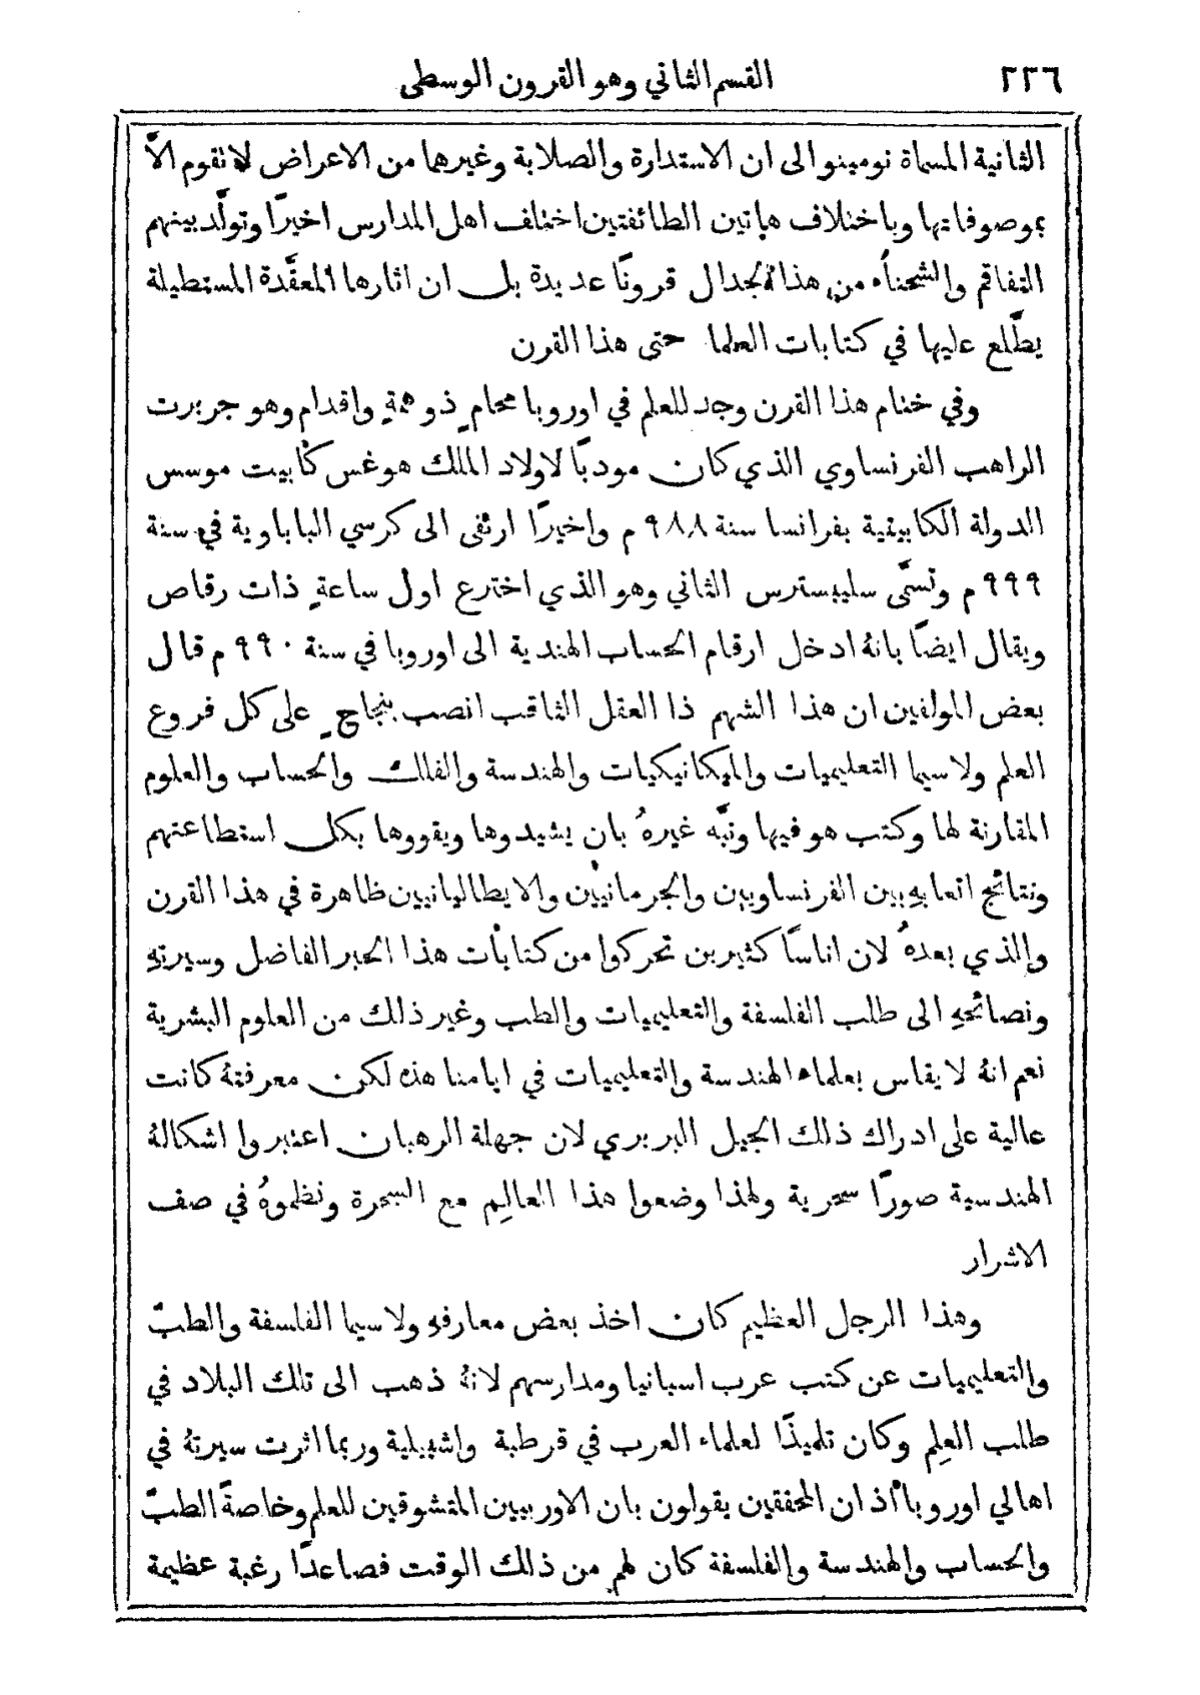 ٢٢٦ القسم الثاني وهو القرون الوسطى
الثانية المسماة نومينو الى ان الاستدارة والصلابة وغيرها من الاعراض لا تقوم الاَّ
بموصوفاتها وباختلاف هاتين الطائفتين اختلف اهل المدارس اخيرًا وتولَّد بينهم
التفاقم والشحناء من هذا الجدال قرونًا عديدة بل ان اثارها المعقَّدة المستطيلة
يطَّلع عليها في كتابات العلما حتى هذا القرن
وفي ختام هذا القرن وجد للعلم في اوروبا محامٍ ذو همةٍ واقدام وهو جربرت
الراهب الفرنساوي الذي كان مودبًا لاولاد الملك هوغس كابيت موسس
الدولة الكابيتية بفرانسا سنة ٩٨٨ م واخيرًا ارتقى الى كرسي الباباوية في سنة
٩٩٩ م وتسمَّى سليبسترس الثاني وهو الذي اخترع اول ساعةٍ ذات رقاص
ويقال ايضًا بانهُ ادخل ارقام الحساب الهندية الى اوروبا في سنة ٩٩٠ م قال
بعض المولفين ان هذا الشهم ذا العقل الثاقب انصب بنجاحٍ على كل فروع
العلم ولاسيما التعليميات والميكانيكيات والهندسة والفلك والحساب والعلوم
المقارنة لها وكتب هو فيها ونبَّه غيرهُ بان يشيدوها ويقووها بكل استطاعتهم
ونتائج اتعابهِ بين الفرنساويين والجرمانيين والايطاليانيين ظاهرة في هذا القرن
والذي بعدهُ لان اناسًا كثيرين تحركوا من كتابات هذا الحبر الفاضل وسيرتهِ
ونصائحهِ الى طلب الفلسفة والتعليميات والطب وغير ذلك من العلوم البشرية
نعم انهُ لا يقاس بعلماء الهندسة والتعليميات في ايامنا هذه لكن معرفتهُ كانت
عالية على ادراك ذلك الجيل البربري لان جهلة الرهبان اعتبروا اشكالهُ
الهندسية صورًا سحرية ولهذا وضعوا هذا العالِم مع السحرة ونظموهُ في صف
الاشرار
وهذا الرجل العظيم كان اخذ بعض معارفهِ ولاسيما الفلسفة والطبّ
والتعليميات عن كتب عرب اسبانيا ومدارسهم لانهُ ذهب الى تلك البلاد في
طلب العلِم وكان تلميذًا لعلماء العرب في قرطبة واشبيلية وربما اثرت سيرتهُ في
اهالي اوروبا أذ ان المحققين يقولون بان الاوربيين المتشوقين للعلم وخاصةً الطبّ
والحساب والهندسة والفلسفة كان لهم من ذلك الوقت فصاعدًا رغبة عظيمة